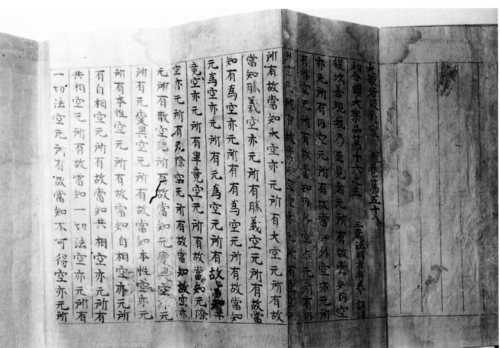 大般若波羅蜜多經卷第五十八
三藏法師玄奘奉 詔譯
初分讚大乘品第十六之三
復次善現我乃至見者无所有故當知內空
亦无所有內空无所有故當知外空亦无
所有外空无所有故當知內外空亦无所有
所有故當知大空亦无所有大空无所有故
當知勝義空亦无所有勝義空无所有故當
知有為空亦无所有有為空无所有故當知
无為空亦无所有无為空无所有故當知畢
竟空亦无所有畢竟空无所有故當知无際
空亦无所有无際空无所有故當知散空亦
无所有散空无所有故當知无變異空亦无
所有无變異空无所有故當知本性空亦无
所有本性空无所有故當知自相空亦无所
有自相空无所有故當知共相空亦无所有
共相空无所有故當知一切法空亦无所有
一切法空无所有故當知不可得空亦无所